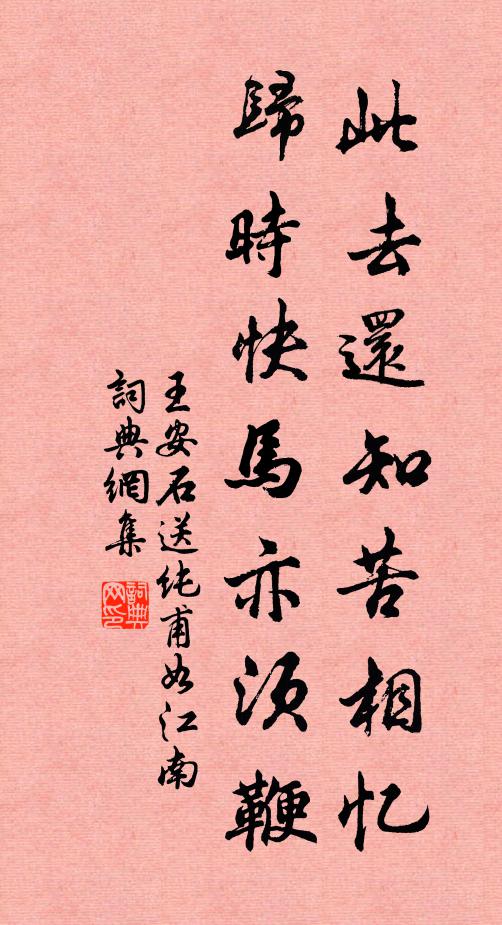 此去還知苦相忆
歸時快馬亦須鞭
王安石送純甫如江南
詞典網集
詞典網印